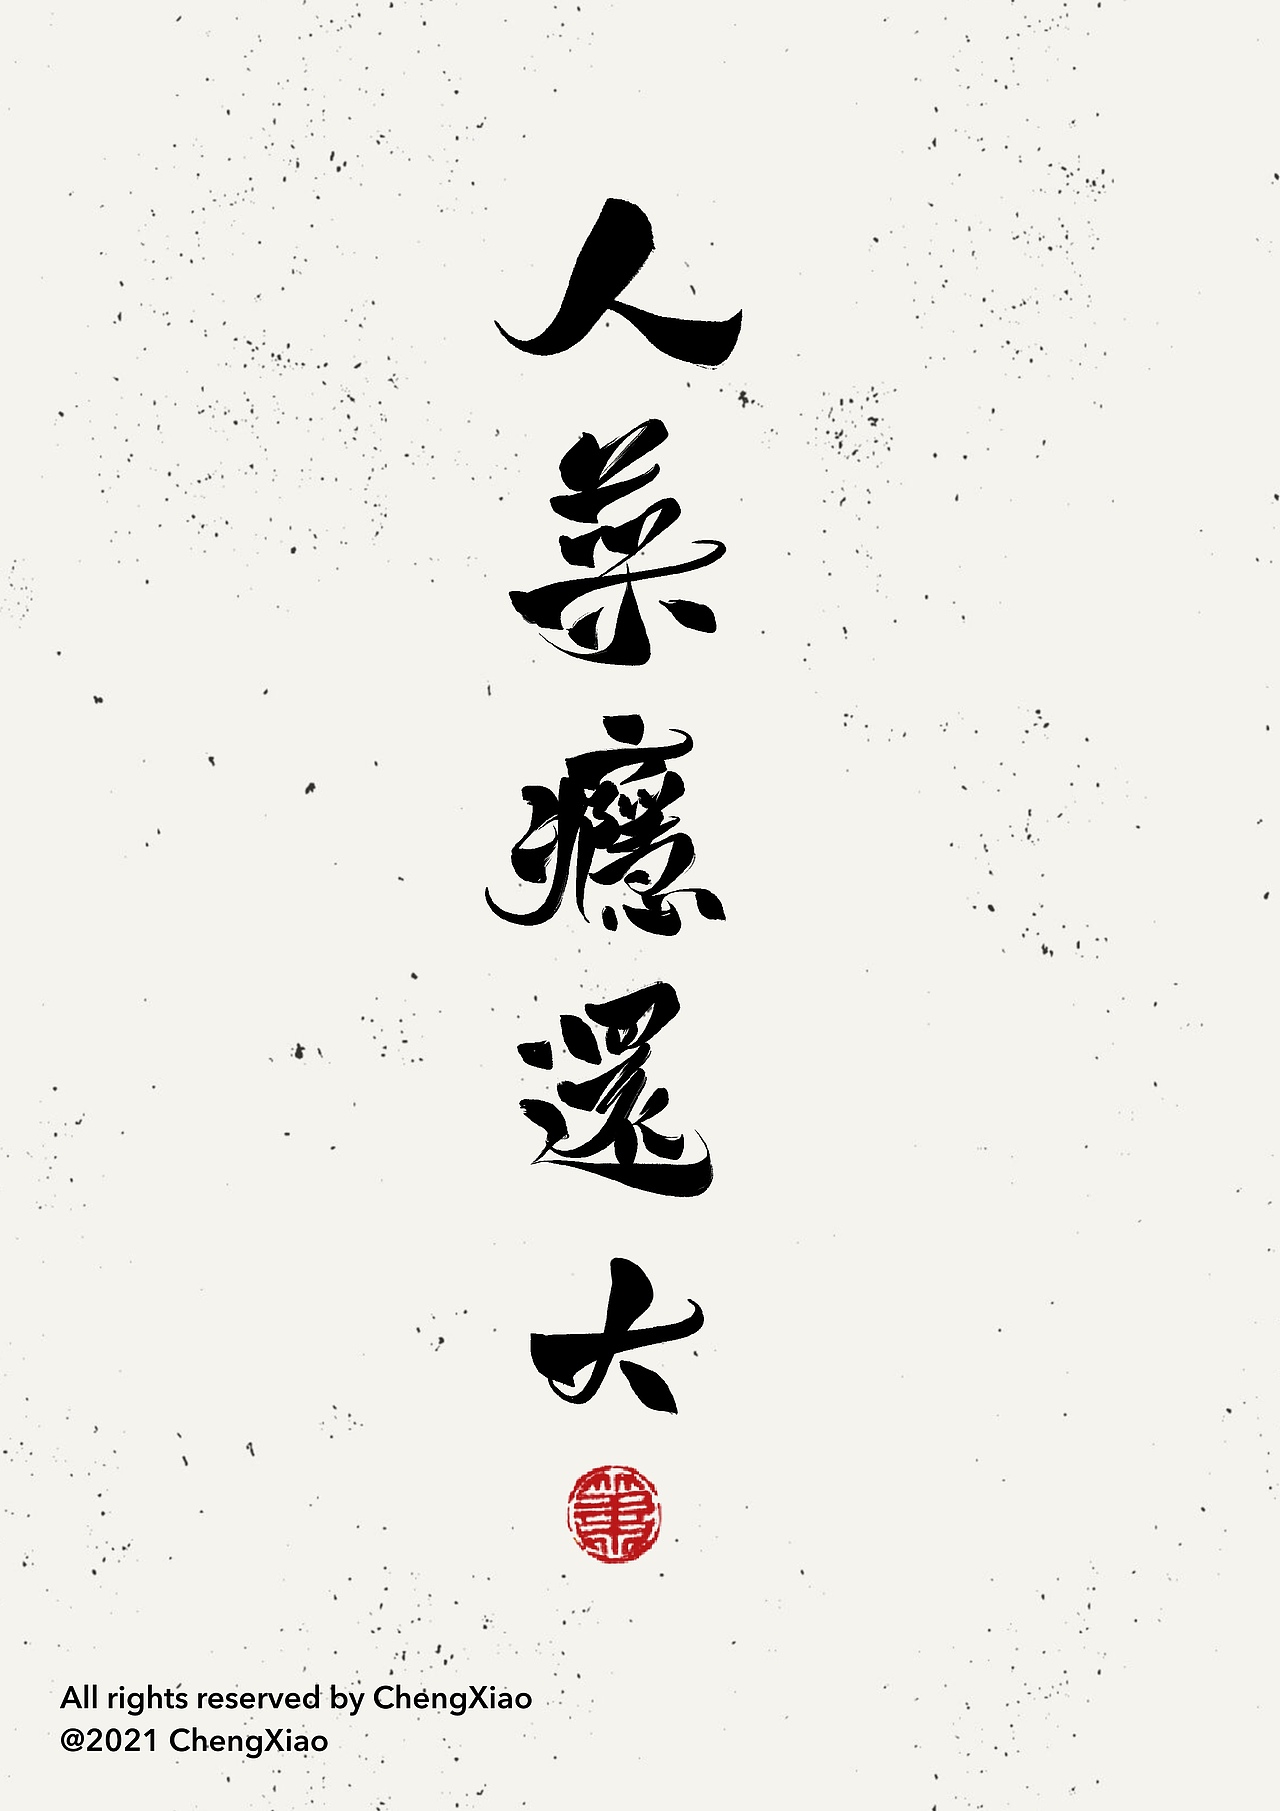 人菜癮還大
All rights reserved by ChengXiao
@2021 ChengXiao